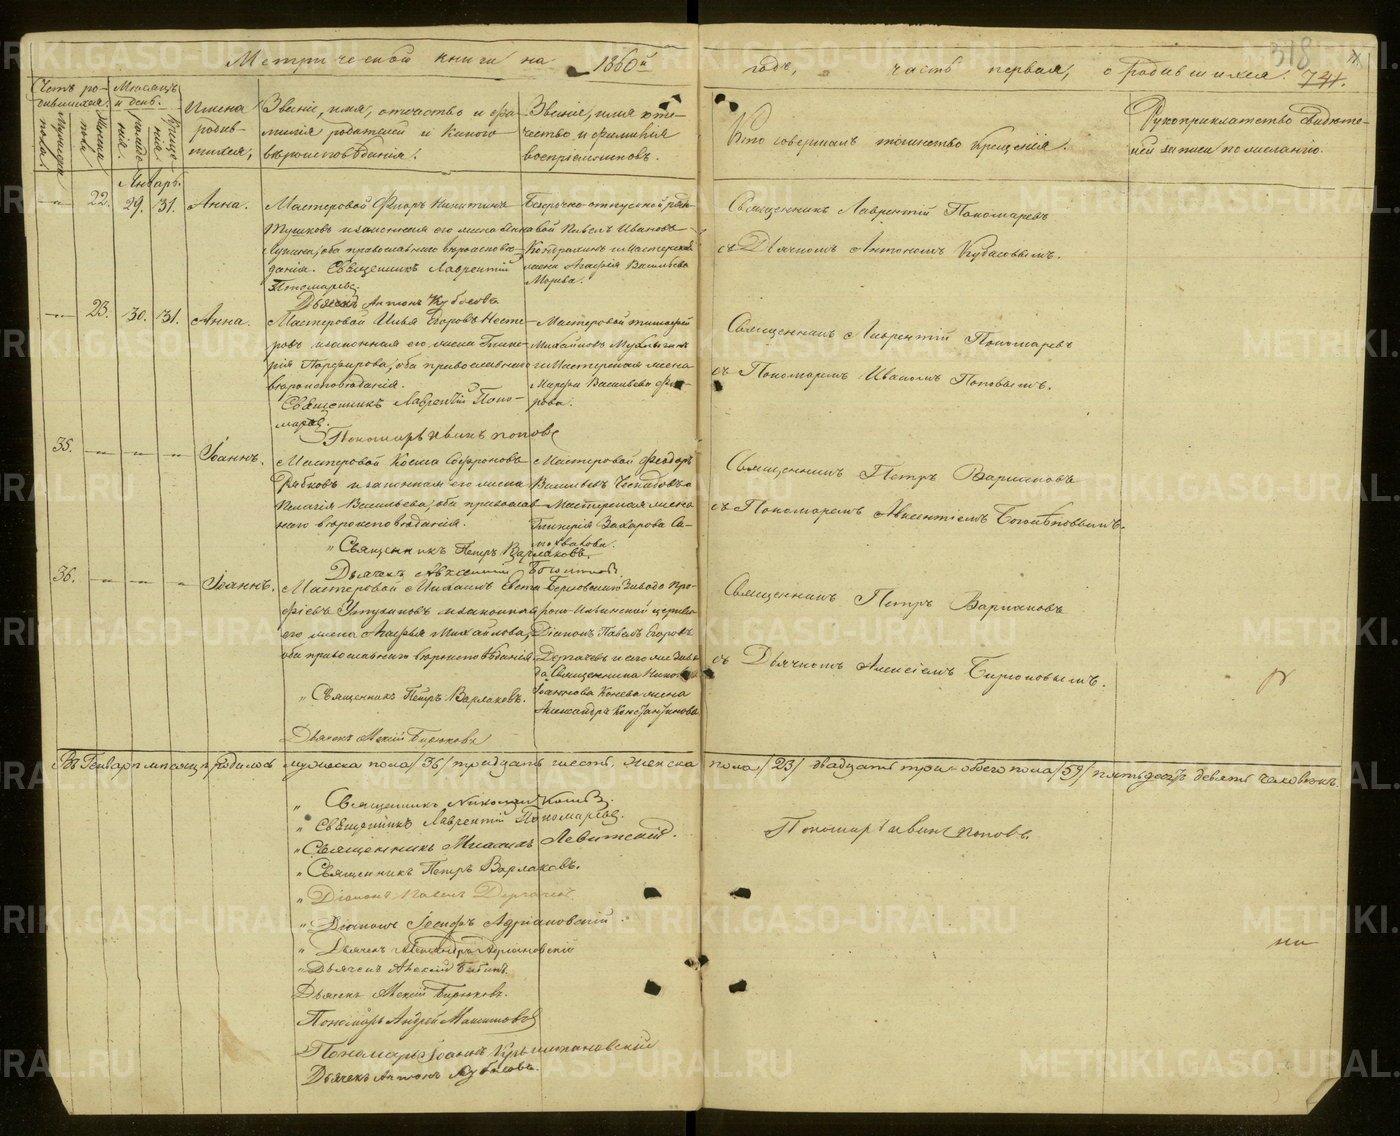 Метрической книги на 1860й годъ, часть первая, о родившихся.
318
741.
Счетъ ро-
дившихся.
Мужеска
пола.
Женска
пола.
Месяцъ
и день.
рожде-
нія.
Креще-
нія.
Имена
родив-
шихся,
Званіе, имя, отчество и фа-
милія родителей и какого
вѣроисповѣданія.
Званіе, имя оте-
чество и фамилія
воспріемниковъ.
Кто совершалъ таинство крещенія.
Рукоприкладство свидете-
лей записи по желанію.
Январь.
22. 29. 31. Анна.
Мастеровой Флоръ Никитинъ
Тушковъ и законная его жена Анна
Лукина, оба православнаго вѣроисповѣ-
данія. Священникъ Лаврентій
Пономаревъ
Дьячекъ Антонъ Кубасовъ
Безсрочно-отпускной ряд-
овой Павелъ Ивановъ
Кондрахинъ и Мастерская
жена Агафія Васильева
Морева.
Священникъ Лаврентій Пономаревъ
съ Дьячкомъ Антономъ Кубасовымъ.
23. 30. 31. Анна.
Мастеровой Илья Егоровъ Несте-
ровъ и законная его жена Глике-
рія Порфирова, оба православнаго
вѣроисповѣданія.
Священникъ Лаврентій Поно-
маревъ
Пономарь Иванъ Поповъ
Мастеровой Тимофей
Михайловъ
и Мастерская жена
Марфа Васильева Фи-
рова.
Священникъ Лаврентій Пономаревъ
съ Пономаремъ Иваномъ Поповымъ.
35. Іоаннъ.
Мастеровой Косма Софроновъ
Рябковъ и законная его жена
Пелагія Васильева, оба православ-
наго вѣроисповѣданія.
Священникъ Петръ Варлаковъ.
Мастеровой Феодоръ
Васильевъ
Мастерская жена
Гликерія Захарова Са-
Священникъ Петръ Варлаковъ
съ Пономаремъ Авксентіемъ
36. Іоаннъ.
Мастеровой Михаилъ Евста-
фіевъ и законная
его жена Агафья Михайлова,
оба православнаго вѣроисповѣданія
Священникъ Петръ Варлаковъ.
Дьячекъ Алексій Бирюковъ
Березовскаго Завода Про-
роко-Ильинской церкви
Діаконъ Павелъ Егоровъ
Дергачевъ и его же Заво-
да Священника Николая
Іоаннова Конева жена
Александра Константинова
Священникъ Петръ Варлаковъ
съ Дьячкомъ Алексіемъ Бирюковымъ.
Въ Генварѣ месяцѣ родилось мужеска пола /36/ тридцать шесть, женска пола /23/ двадцать три обоего пола /59/ пятьдесятъ девять человекъ.
Священникъ Николай Коневъ.
Священникъ Лаврентій Пономаревъ
Священникъ Михаилъ Левитскій.
Священникъ Петръ Варлаковъ.
Діаконъ Павелъ Дергачевъ
Діаконъ Іосифъ Адріановскій
Дьячекъ Александръ Адріановскій
Дьячекъ Алексій
Дьячекъ Алексій Бирюковъ.
Пономарь Андрей
Пономарь Іоаннъ
Дьячекъ Антонъ Кубасовъ.
Пономарь Иванъ Поповъ
METRIKI.GASO-URAL.RU